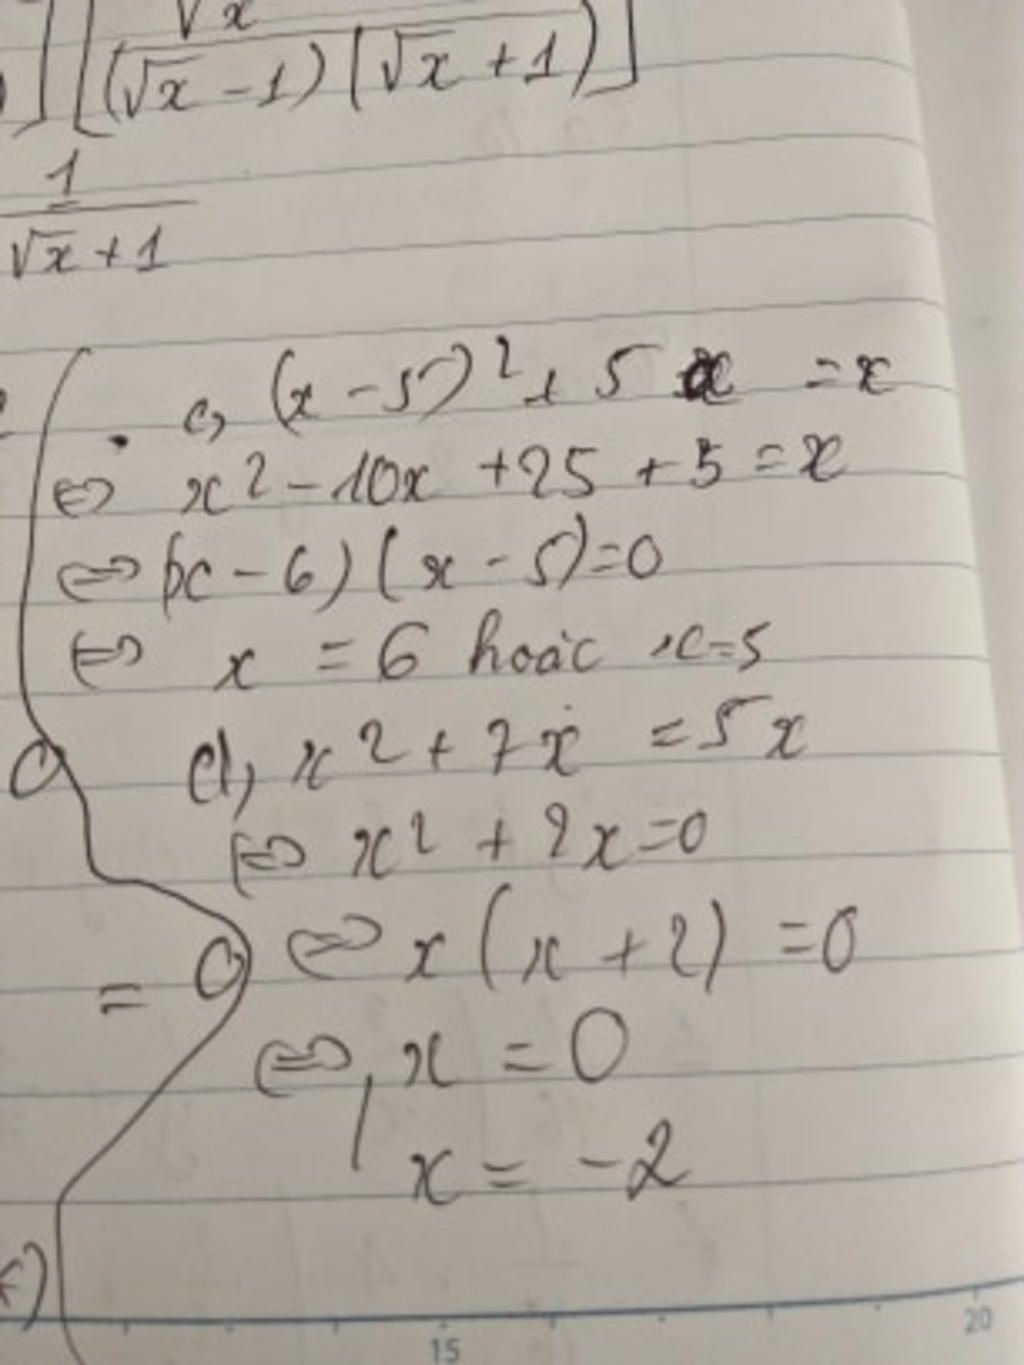 √x
] [ (√x - 1)(√x + 1) ]
1
√x + 1
c, (x - 5)² + 5 = x
⇔ x² - 10x + 25 + 5 = x
⇔ (x - 6)(x - 5) = 0
⇔ x = 6 hoặc x = 5
d, x² + 7x = 5x
⇔ x² + 2x = 0
= 0 ⇔ x(x + 2) = 0
⇔ x = 0
x = -2
15 20